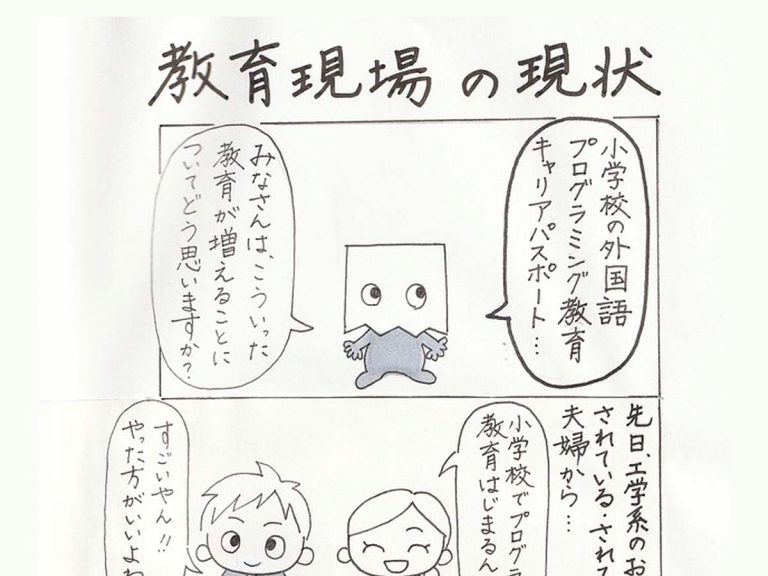 教育現場の現状
小学校の外国語
プログラミング教育
キャリアパスポート…
みなさんは、こういった
教育が増えることに
ついてどう思いますか？
先日、工学系のお
されている・されて
夫婦から…
小学校でプログラ
教育はじまるん
すごいやん!!
やった方がいいよね